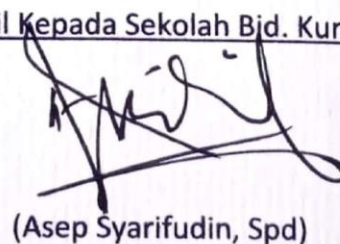 il Kepada Sekolah Bid. Kur
(Asep Syarifudin, Spd)